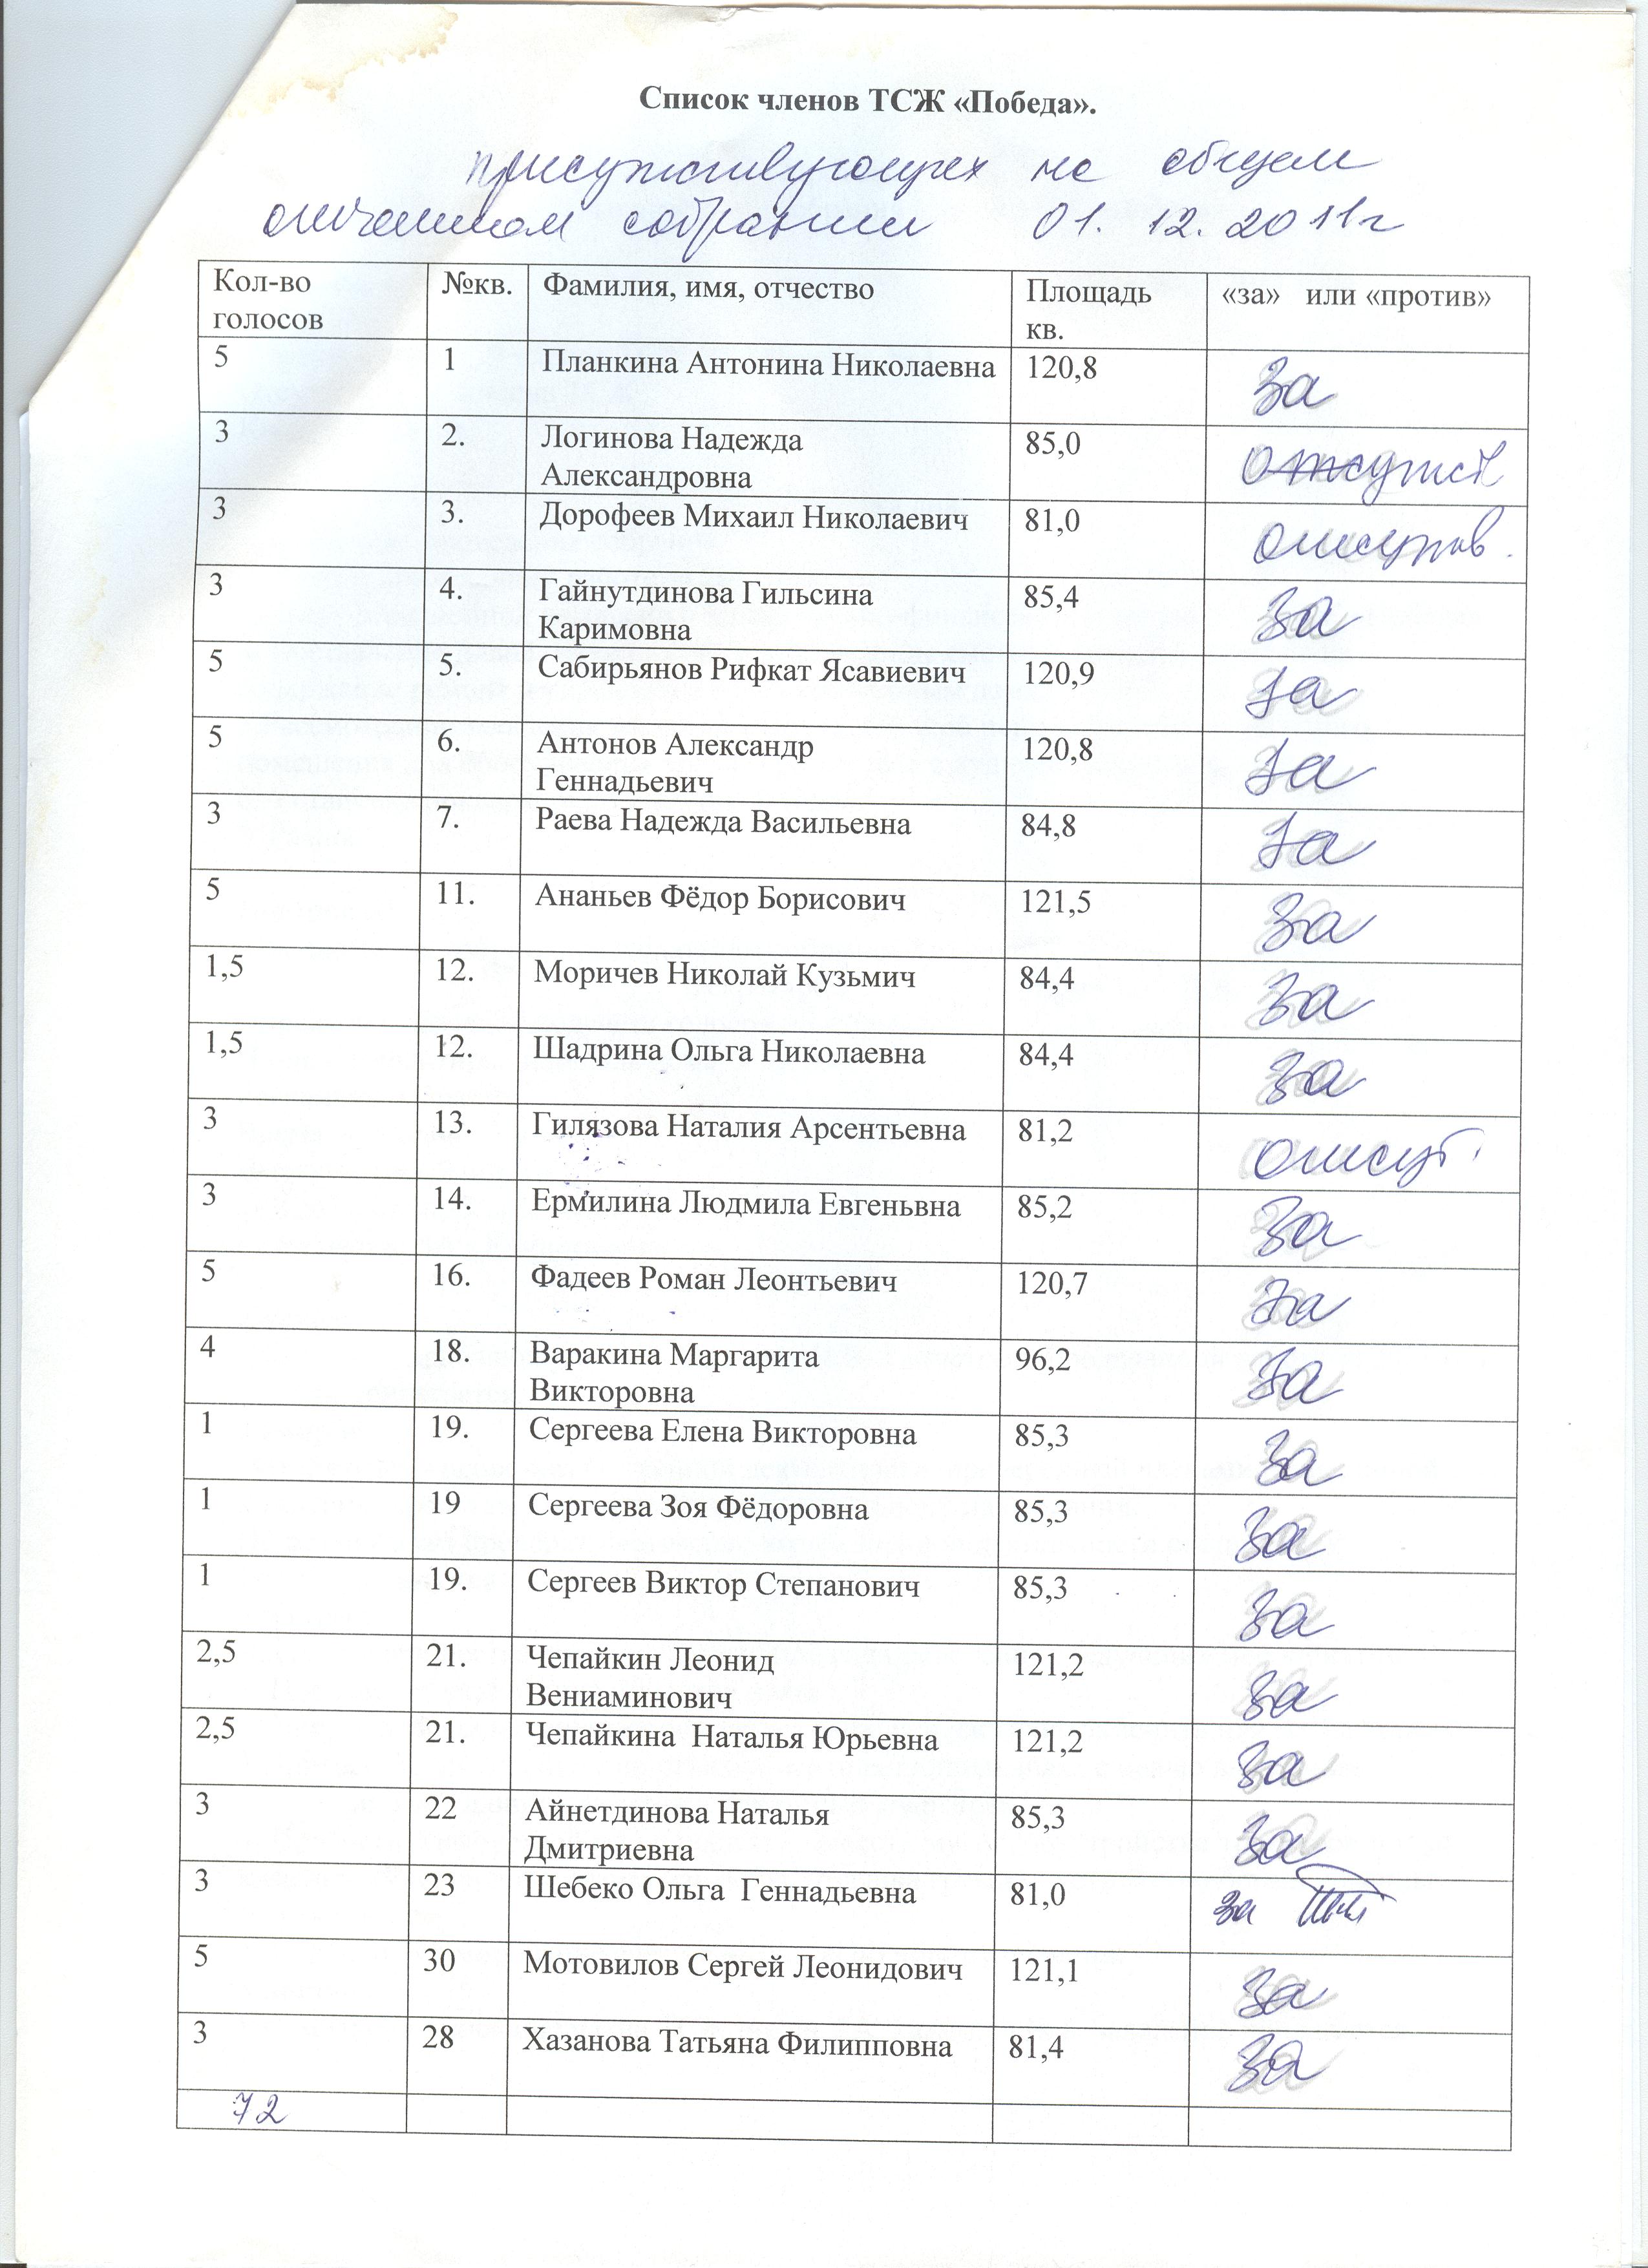 Список членов ТСЖ «Победа».
присутствующих на общем
отчетном собрании 01. 12. 2011г
Кол-во голосов №кв. Фамилия, имя, отчество Площадь кв. «за» или «против»
5 1 Планкина Антонина Николаевна 120,8 за
3 2. Логинова Надежда 85,0 отсутств
Александровна
3 3. Дорофеев Михаил Николаевич 81,0 отсутв.
3 4. Гайнутдинова Гильсина 85,4 за
Каримовна
5 5. Сабирьянов Рифкат Ясавиевич 120,9 за
5 6. Антонов Александр 120,8 за
Геннадьевич
3 7. Раева Надежда Васильевна 84,8 за
5 11. Ананьев Фёдор Борисович 121,5 за
1,5 12. Моричев Николай Кузьмич 84,4 за
1,5 12. Шадрина Ольга Николаевна 84,4 за
3 13. Гилязова Наталия Арсентьевна 81,2 отсут.
3 14. Ермилина Людмила Евгеньвна 85,2 за
5 16. Фадеев Роман Леонтьевич 120,7 за
4 18. Варакина Маргарита 96,2 за
Викторовна
1 19. Сергеева Елена Викторовна 85,3 за
1 19 Сергеева Зоя Фёдоровна 85,3 за
1 19. Сергеев Виктор Степанович 85,3 за
2,5 21. Чепайкин Леонид 121,2 за
Вениаминович
2,5 21. Чепайкина Наталья Юрьевна 121,2 за
3 22 Айнетдинова Наталья 85,3 за
Дмитриевна
3 23 Шебеко Ольга Геннадьевна 81,0 за
5 30 Мотовилов Сергей Леонидович 121,1 за
3 28 Хазанова Татьяна Филипповна 81,4 за
72